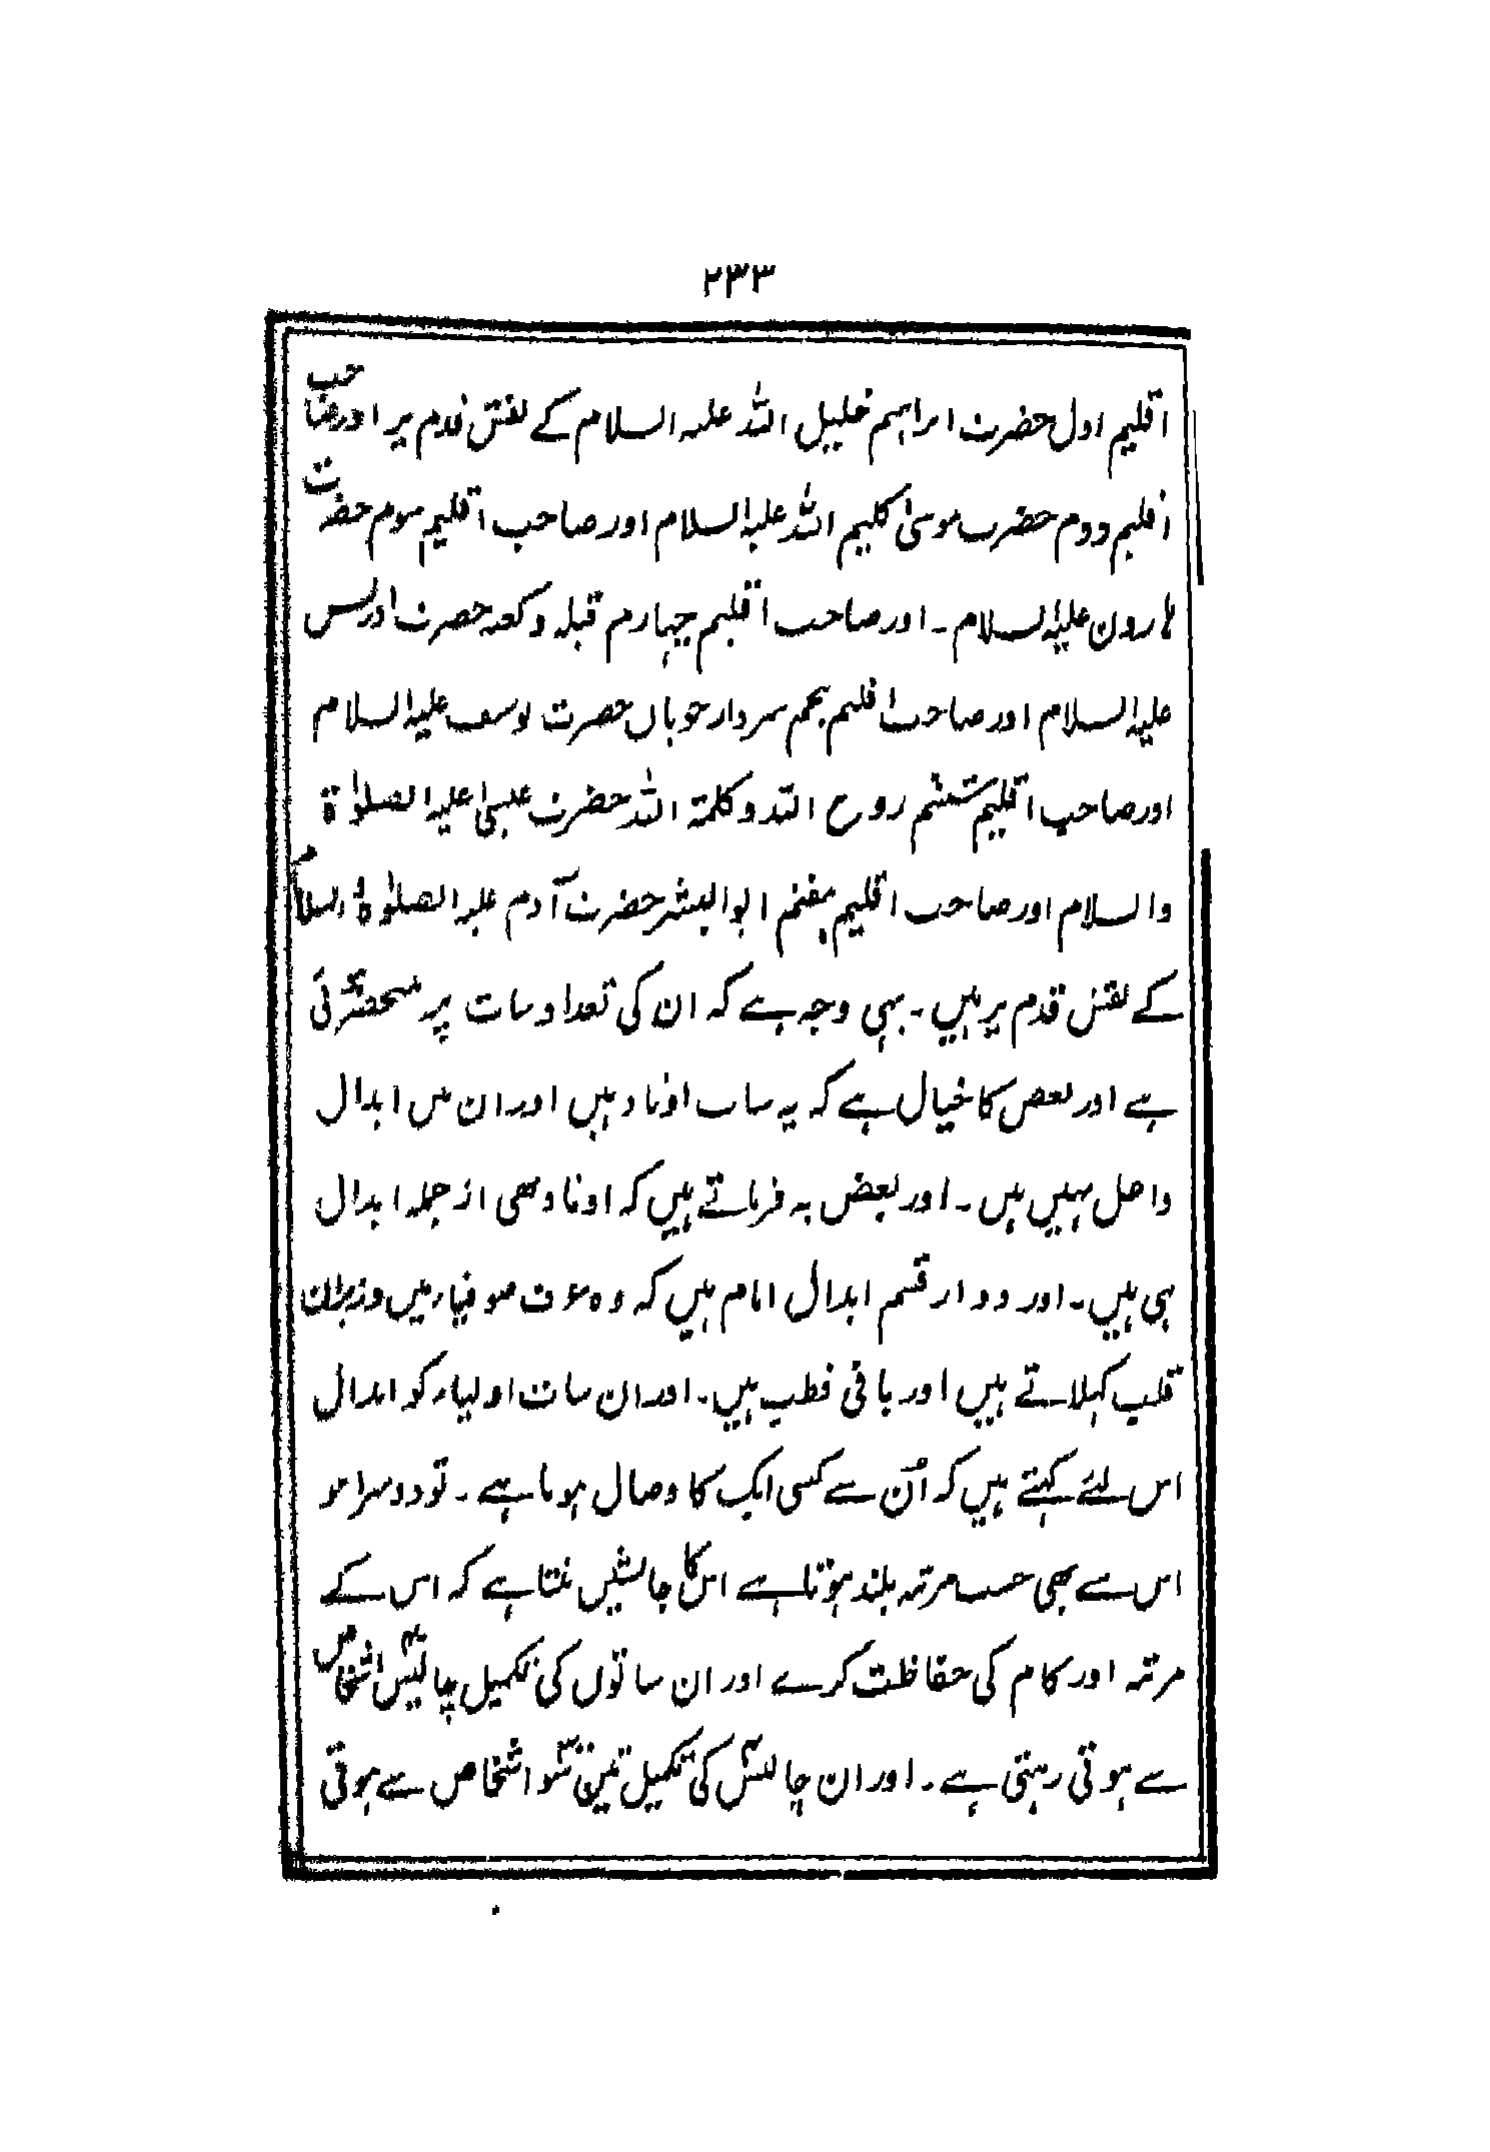 ۲۳۳
اقلیم اول حضرت ابراہیم خلیل اللہ علیہ السلام کے نقش قدم پر اور صاحب
اقلیم دوم حضرت موسیٰ کلیم اللہ علیہ السلام اور صاحب اقلیم سوم حضرت
ہارون علیہ السلام ۔ اور صاحب اقلیم چہارم قبلہ و کعبہ حضرت ادریس
علیہ السلام اور صاحب اقلیم پنجم سردار خوباں حضرت یوسف علیہ السلام
اور صاحب اقلیم ششم روح اللہ و کلمۃ اللہ حضرت عیسیٰ علیہ الصلوٰۃ
والسلام اور صاحب اقلیم ہفتم ابوالبشر حضرت آدم علیہ الصلوٰۃ والسلام
کے نقش قدم پر ہیں ۔ یہی وجہ ہے کہ ان کی تعداد سات پر منحصر
ہے اور بعض کا خیال ہے کہ یہ سات اوتاد ہیں اور ان میں ابدال
داخل نہیں ہیں ۔ اور بعض یہ فرماتے ہیں کہ اوتاد بھی از جملہ ابدال
ہی ہیں ۔ اور دو از قسم ابدال امام ہیں کہ وہ صوفیاء میں وزیران
قلب کہلاتے ہیں اور باقی قطب ہیں ۔ اور ان سات اولیاء کو ابدال
اس لئے کہتے ہیں کہ اُن سے کسی ایک کا وصال ہوتا ہے ۔ تو دوسرا جو
اس سے بھی حسب مرتبہ بلند ہوتا ہے اس کا جانشیں بنتا ہے کہ اس کے
مرتبہ اور کام کی حفاظت کرے اور ان ساتوں کی تکمیل چالیس اشخاص
سے ہوتی رہتی ہے ۔ اور ان چالیس کی تکمیل تین سو اشخاص سے ہوتی